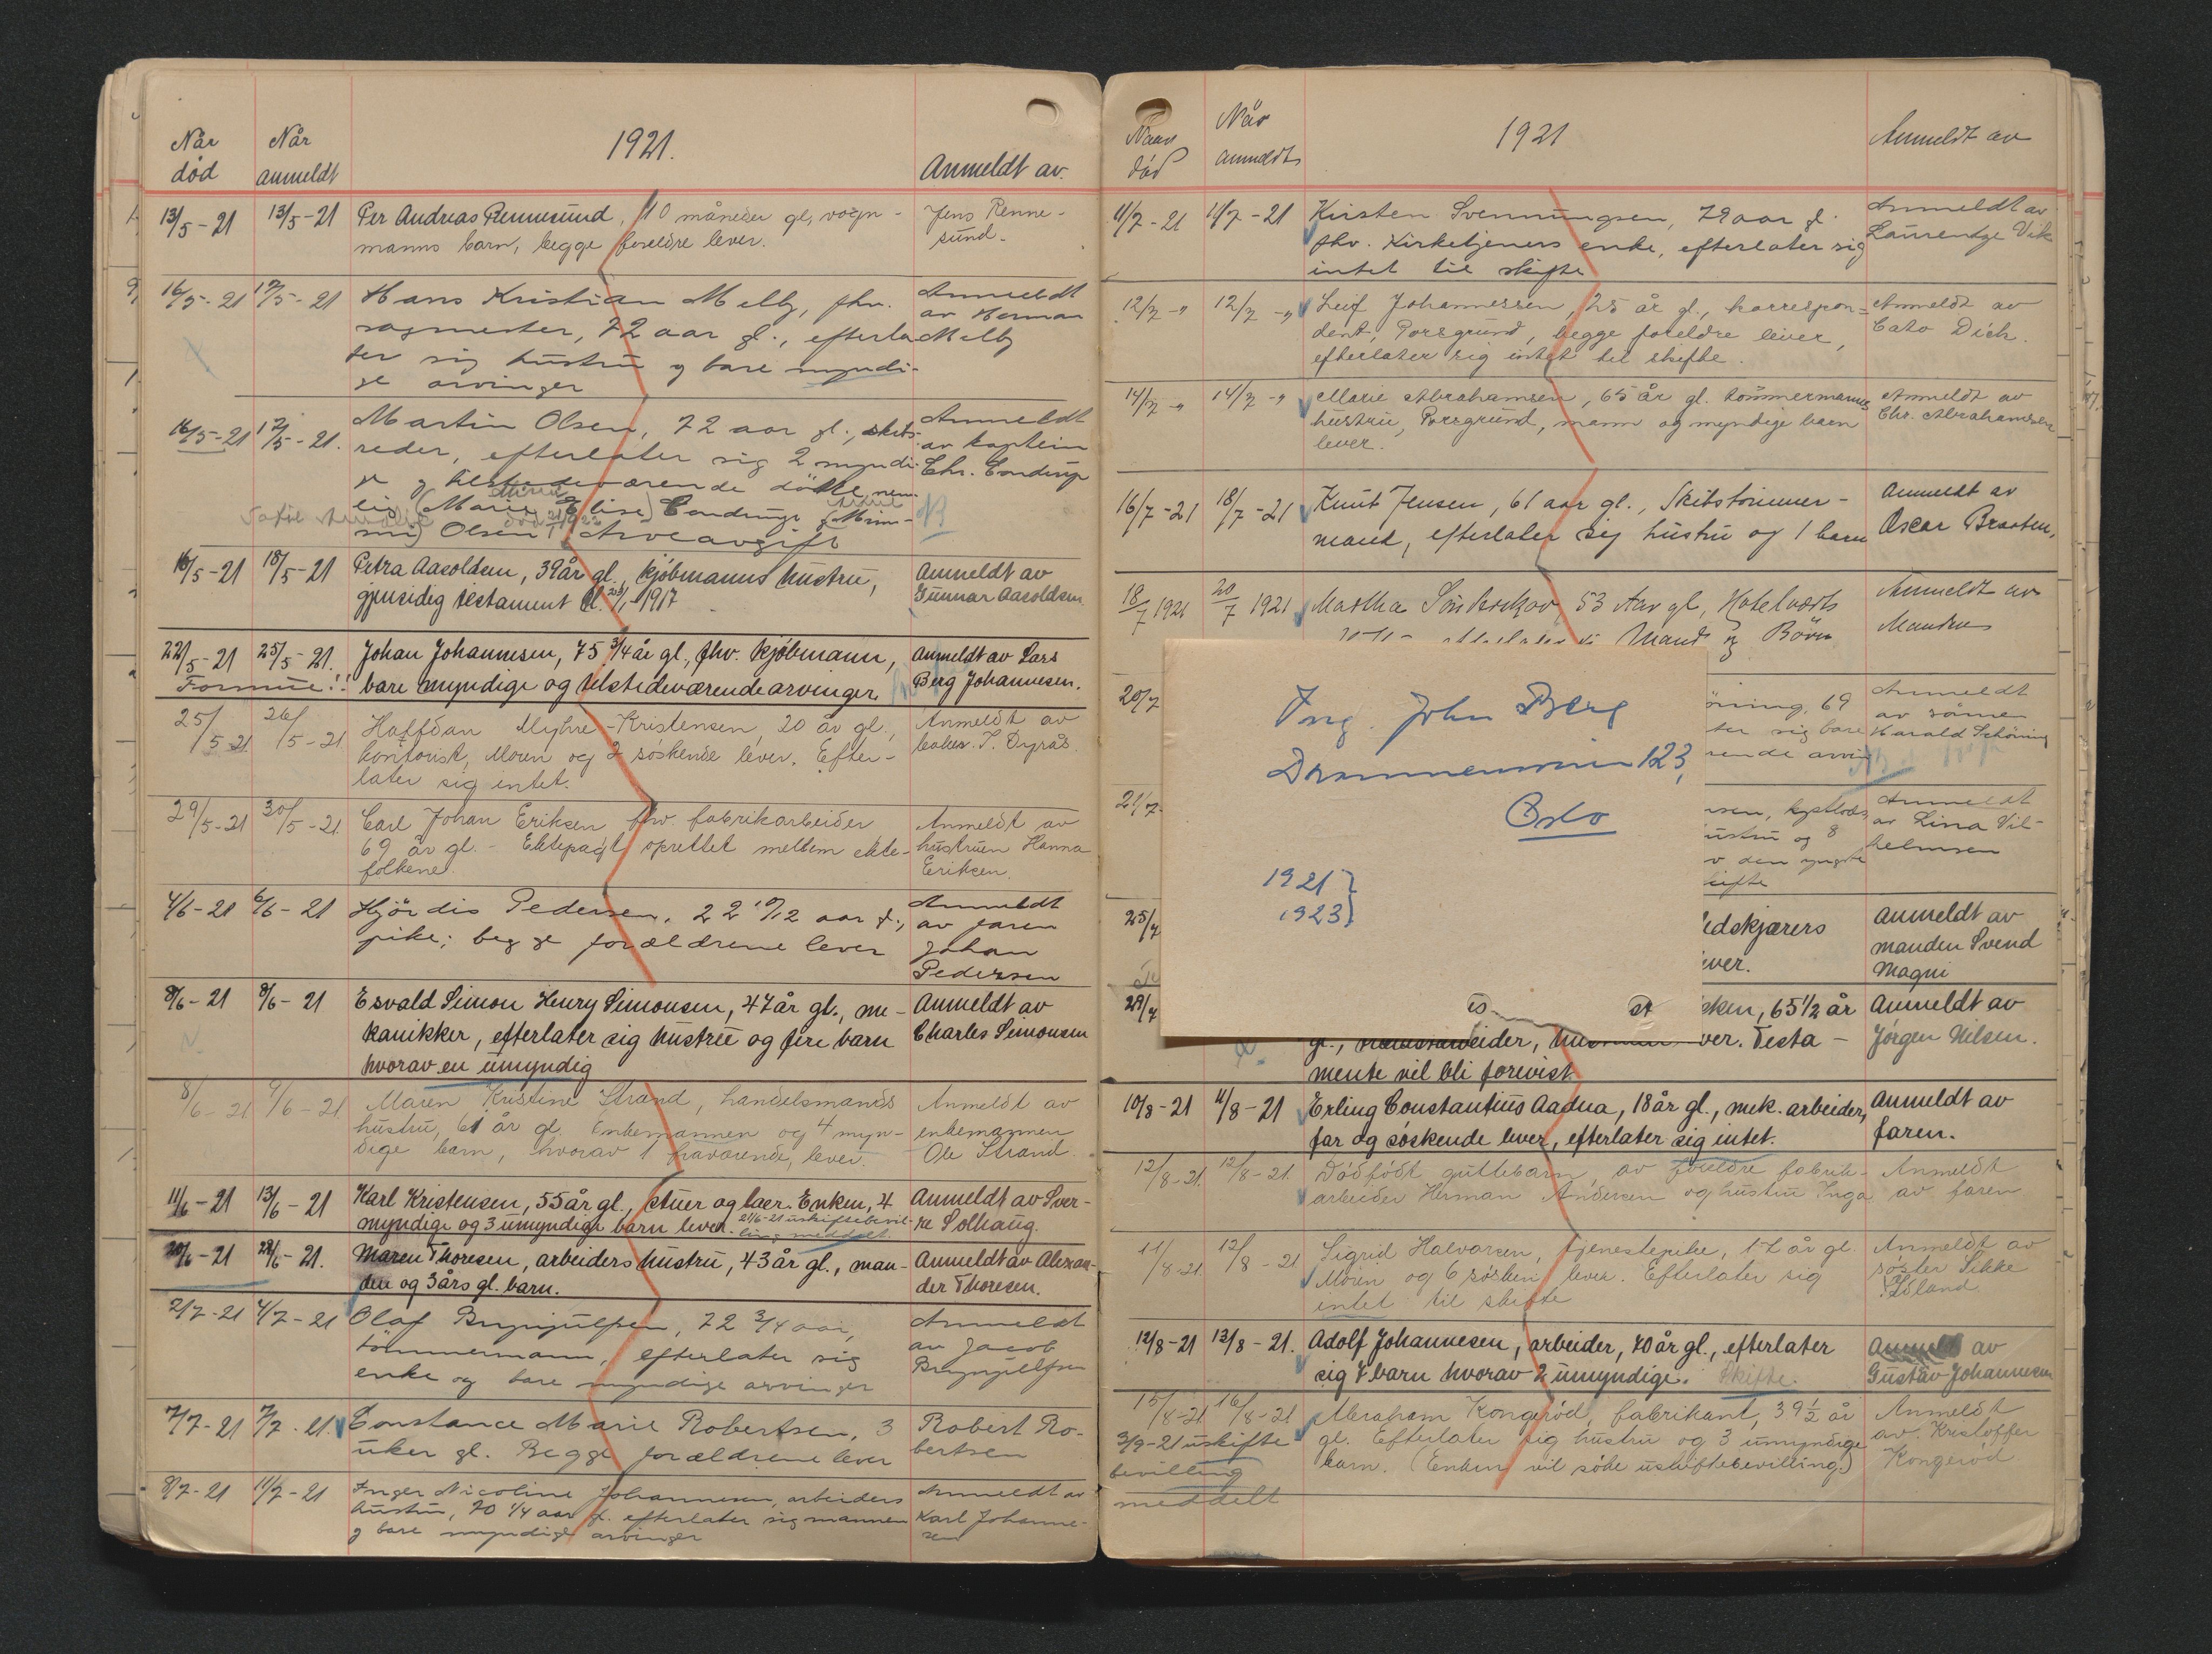 Når død
Når anmeldt
1921.
Anmeldt av.
13/5-21 13/5-21 Per Andreas Rennesund, 10 måneder gl, vogn- Jens Renne-
manns barn, begge foreldre lever. sund.
16/5-21 17/5-21 Hans Kristian Melby, fhv. Anmeldt
sagmester, 72 aar gl., efterla- av Herman
ter sig hustru og bare myndi- Melby
ge arvinger
16/5-21 17/5-21. Martin Olsen, 72 aar gl., skibs- Anmeldt
reder, efterlater sig 2 myndi- av kaptein
ge og tilstedeværende døtre, nem- Chr. Conderup
lig (Marie Elise) Conderup (Min-
ni) Olsen Arveavgift
16/5-21 18/5-21 Petra Aasoldsen, 39 år gl., kjøbmanns hustru, Anmeldt av
gjensidig testament bl. 20/1-1917 Gunnar Aasoldsen
22/5-21 25/5-21. Johan Johannesen, 75 3/4 år gl., fhv. kjøbmann, Anmeldt av Lars
Formue!! bare myndige og tilstedeværende arvinger Berg Johannesen.
25/5-21 26/5-21 Halfdan Myhre-Kristensen, 20 år gl., Anmeldt av
kontorist, Moren og 2 søskende lever. Efter- Johs. T. Dyrås.
later sig intet.
29/5-21 30/5-21 Carl Johan Eriksen fhv. fabrikarbeider Anmeldt av
69 år gl. - Ektepagt oprettet mellem ekte- hustruen Hanna
folkene. Eriksen.
4/6-21 6/6-21 Hjørdis Pedersen, 22 10/12 aar gl., Anmeldt
pike; begge forældrene lever av faren
Johan
Pedersen
8/6-21 8/6-21 Esvald Simon Henry Simonsen, 47 år gl., me- Anmeldt av
kanikker, efterlater sig hustru og fire barn Charles Simonsen
hvorav en umyndig
8/6-21 9/6-21 Maren Kristine Strand, handelsmands Anmeldt av
hustru, 61 år gl. Enkemannen og 4 myn- enkemannen
dige barn, hvorav 1 fraværende, lever. Ole Strand
11/6-21 13/6-21 Karl Kristensen, 55 år gl., stuer og laer. Enken, 4 Anmeldt av Sver-
myndige og 3 umyndige barn lever. 21/6-21 uskiftebevil- re Solhaug.
ling meddelt.
20/6-21 28/6-21. Maren Thoresen, arbeiders hustru, 43 år gl., man- Anmeldt av Alexan-
den og 3 års gl. barn. der Thoresen.
2/7-21 4/7-21 Olaf Brynjulfsen, 72 3/4 aar, Anmeldt
tømmermann, efterlater sig av Jacob
enke og bare myndige arvinger Brynjulfsen
7/7-21 7/7-21. Constance Marie Robertsen, 3 Robert Ro-
uker gl. Begge forældrene lever bertsen
8/7-21 11/7-21 Inger Nicoline Johannesen, arbeiders Anmeldt av
hustru, 70 1/4 aar gl. efterlater sig mannen Karl Johanne-
og bare myndige arvinger sen
Naar død
Når anmeldt
1921
Anmeldt av
11/7-21 11/7-21 Kirsten Svenningsen, 79 aar gl. Anmeldt av
fhv. kirketjeners enke, efterlater sig Laurentze Vik
intet til skifte
12/7-" 12/7-" Leif Johannessen, 25 år gl., korrespon- Anmeldt av
dent, Porsgrund, begge foreldre lever, Cato Dich.
efterlater sig intet til skifte.
14/7-" 14/7-" Marie Abrahamsen, 65 år gl. tømmermanns Anmeldt av
hustru, Porsgrund, mann og myndige barn Chr. Abrahamsen
lever.
16/7-21 18/7-21 Knut Jensen, 61 aar gl., Skibstømmer- Anmeldt av
mand, efterlater sig hustru og 1 barn Oscar Braaten,
18/7 1921 20/7 1921 Martha Sønderskov 53 Aar gl, Hotelværts Anmeldt av
Mand og Børn Manden
20/7 69 Anmeldt
sig bare av sønnen
arvin Harald Schöning
21/7- Anmeldt
hustru og 8 av Lina Vil-
den yngste helmsen
25/7 Anmeldt av
manden Svend
Magni
29/7 65 1/2 år Anmeldt av
gl., Testa- Jørgen Nilsen.
mente vil bli forevist.
Ing. John Berg
Drammensveien 123,
Oslo
1921}
1923}
10/8-21 11/8-21 Erling Constantius Aadna, 18 år gl., mek. arbeider, Anmeldt av
far og søskende lever, efterlater sig intet. faren.
12/8-21. 12/8-21. Dødfødt guttebarn, av foreldre fabrik- Anmeldt
arbeider Herman Andersen og hustru Inga av faren
11/8-21. 12/8-21 Sigrid Halvorsen, tjenestepike, 17 år gl. Anmeldt av
Moren og 6 søsken lever. Efterlater sig søster Sikke
intet til skifte Åland
12/8-21 13/8-21. Adolf Johannesen, arbeider, 70 år gl., efterlater Anmeldt av
sig 8 barn hvorav 2 umyndige. Skifte. Gustav Johannesen
15/8-21 16/8-21 Abraham Kongerød, fabrikant, 39 1/2 år Anmeldt
3/9-21 uskifte- gl. Efterlater sig hustru og 3 umyndige av Kristoffer
bevilling barn. (Enken vil søke uskiftebevilling.) Kongerød
meddelt